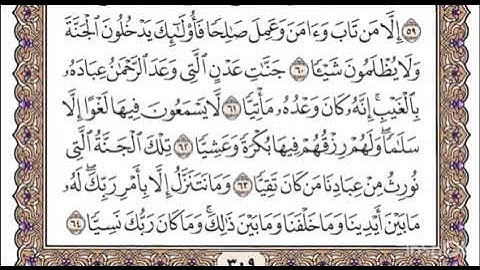 ٥٩ إِلَّا مَن تَابَ وَءَامَنَ وَعَمِلَ صَٰلِحًا فَأُو۟لَٰٓئِكَ يَدْخُلُونَ ٱلْجَنَّةَ
وَلَا يُظْلَمُونَ شَيْـًٔا ٦٠ جَنَّٰتِ عَدْنٍ ٱلَّتِى وَعَدَ ٱلرَّحْمَٰنُ عِبَادَهُۥ
بِٱلْغَيْبِ ۚ إِنَّهُۥ كَانَ وَعْدُهُۥ مَأْتِيًّا ٦١ لَّا يَسْمَعُونَ فِيهَا لَغْوًا إِلَّا
سَلَٰمًا ۖ وَلَهُمْ رِزْقُهُمْ فِيهَا بُكْرَةً وَعَشِيًّا ٦٢ تِلْكَ ٱلْجَنَّةُ ٱلَّتِى
نُورِثُ مِنْ عِبَادِنَا مَن كَانَ تَقِيًّا ٦٣ وَمَا نَتَنَزَّلُ إِلَّا بِأَمْرِ رَبِّكَ ۖ لَهُۥ
مَا بَيْنَ أَيْدِينَا وَمَا خَلْفَنَا وَمَا بَيْنَ ذَٰلِكَ ۚ وَمَا كَانَ رَبُّكَ نَسِيًّا ٦٤
٣٠٩